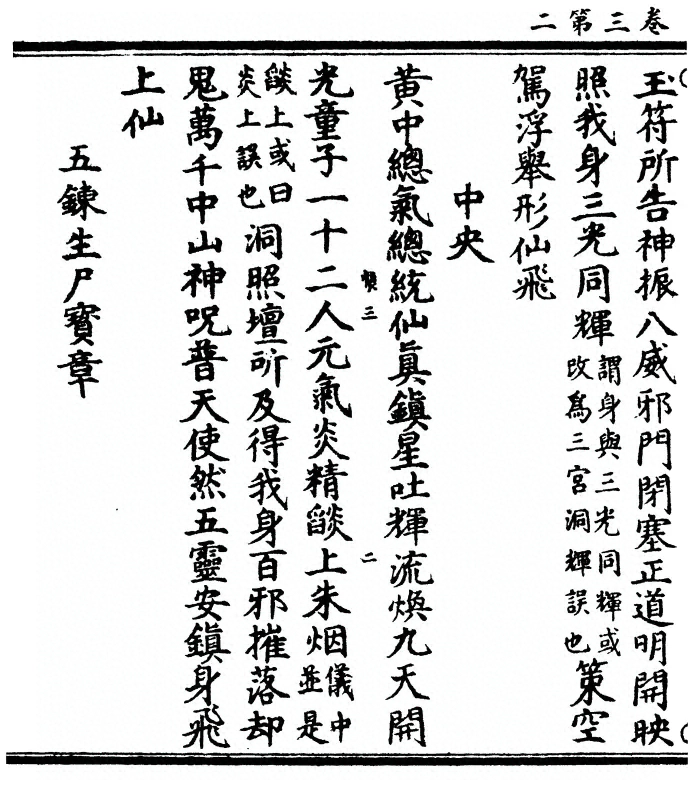 卷三第二
玉符所告神振八威邪門閉塞正道明開映
照我身三光同輝謂身與三光同輝或改爲三宮洞輝誤也策空
駕浮舉形仙飛
中央
黃中總氣總統仙眞鎮星吐輝流煥九天開
賢三
二
光童子一十二人元氣炎精燄上朱烟儀中並是
燄上或曰炎上誤也洞照壇所及得我身百邪摧落却
鬼萬千中山神呪普天使然五靈安鎮身飛
上仙
五鍊生尸寶章